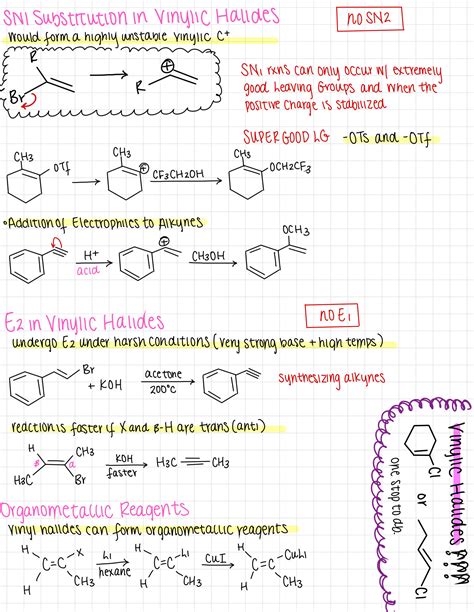 SN1 Substitution in Vinylic Halides
no SN2
would form a highly unstable vinylic C+
R
Br
R
SN1 rxns can only occur w/ extremely
good Leaving Groups and when the
positive charge is stabilized
SUPER GOOD LG -OTs and -OTf
CH3
OTf
CH3
CF3CH2OH
CH3
OCH2CF3
•Addition of Electrophiles to Alkynes
H+
acid
CH3OH
OCH3
E2 in Vinylic Halides
no E1
undergo E2 under harsh conditions (very strong base + high temps)
Br
+ KOH
acetone
200°C
synthesizing alkynes
reaction is faster if X and β-H are trans (anti)
H
CH3
β
α
H3C
Br
KOH
faster
H3C
CH3
Vinylic Halides
Cl
or
Cl
one stop to do.
Organometallic Reagents
vinyl halides can form organometallic reagents
H
X
C=C
H
CH3
Li
hexane
H
Li
C=C
H
CH3
CuI
H
CuLi
C=C
H
CH3